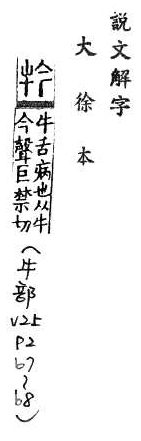 說文解字
大徐本
牛舌病也从牛
今聲巨禁切
(牛部
V25
P2
67~68)